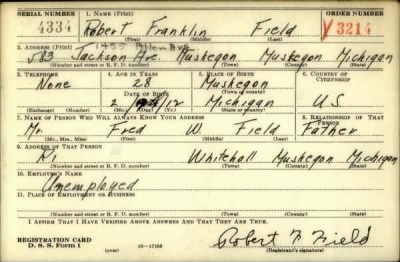 SERIAL NUMBER 1. NAME (Print) ORDER NUMBER
4334 Robert Franklin Field V3214
(First) (Middle) (Last)
2. ADDRESS (Print) 1455 Allen Ave
583 Jackson Ave. Muskegon Muskegon Michigan
(Number and street or R. F. D. number) (Town) (County) (State)
3. TELEPHONE 4. AGE IN YEARS 5. PLACE OF BIRTH 6. COUNTRY OF CITIZENSHIP
None 28 Muskegon
DATE OF BIRTH (Town or county)
2 /12 Michigan US
(Exchange) (Number) (Mo.) (Day) (Yr.) (State or country)
7. NAME OF PERSON WHO WILL ALWAYS KNOW YOUR ADDRESS 8. RELATIONSHIP OF THAT PERSON
Mr. Fred W Field Father
(Mr., Mrs., Miss) (First) (Middle) (Last)
9. ADDRESS OF THAT PERSON
R1 Whitehall Muskegon Michigan
(Number and street or R. F. D. number) (Town) (County) (State)
10. EMPLOYER'S NAME
Unemployed
11. PLACE OF EMPLOYMENT OR BUSINESS
(Number and street or R. F. D. number) (Town) (County) (State)
I AFFIRM THAT I HAVE VERIFIED ABOVE ANSWERS AND THAT THEY ARE TRUE.
REGISTRATION CARD
D. S. S. FORM 1 (over) 16—17105 Robert F. Field
(Registrant's signature)